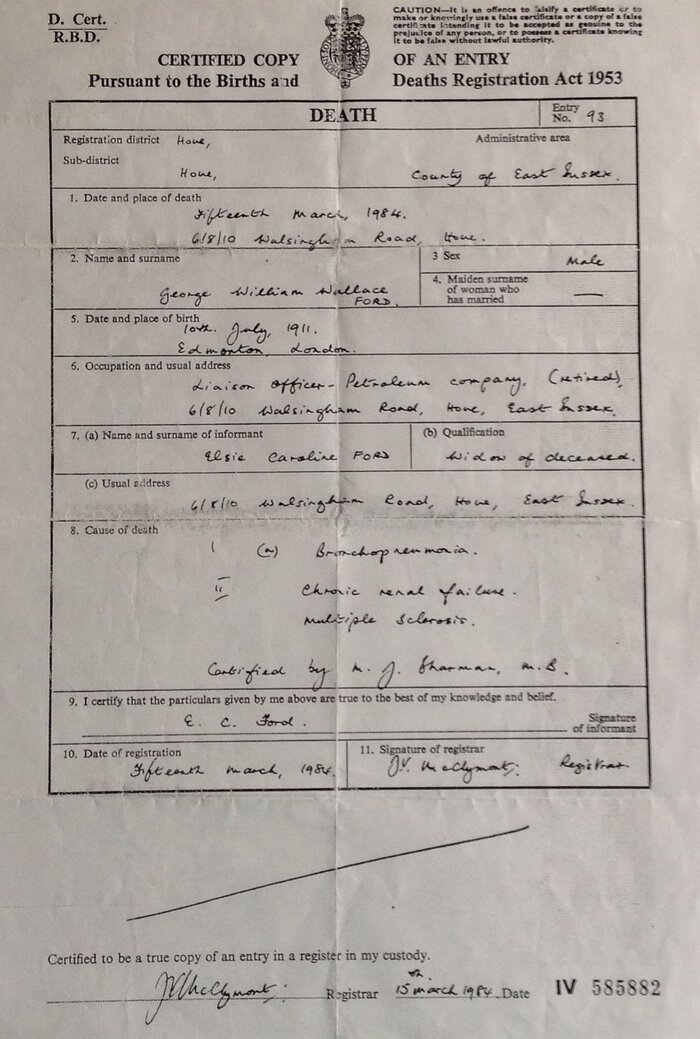 D. Cert.
R.B.D.
CAUTION—It is an offence to falsify a certificate or to
make or knowingly use a false certificate or a copy of a false
certificate intending it to be accepted as genuine to the
prejudice of any person, or to possess a certificate knowing
it to be false without lawful authority.
CERTIFIED COPY OF AN ENTRY
Pursuant to the Births and Deaths Registration Act 1953
DEATH
Entry No. 93
Registration district Hove,
Administrative area
Sub-district
Hove, County of East Sussex.
1. Date and place of death
Fifteenth March, 1984.
6/8/10 Walsingham Road, Hove.
2. Name and surname
George William Wallace
FORD.
3 Sex
Male
4. Maiden surname
of woman who
has married —
5. Date and place of birth
10th. July, 1911.
Edmonton, London.
6. Occupation and usual address
Liaison Officer - Petroleum company. (retired)
6/8/10 Walsingham Road, Hove, East Sussex.
7. (a) Name and surname of informant
Elsie Caroline FORD
(b) Qualification
Widow of deceased.
(c) Usual address
6/8/10 Walsingham Road, Hove, East Sussex.
8. Cause of death
I (a) Bronchopneumonia.
II Chronic renal failure.
Multiple Sclerosis.
Certified by M. J. Sharman, M.B.
9. I certify that the particulars given by me above are true to the best of my knowledge and belief.
E. C. Ford.
Signature
of informant
10. Date of registration
Fifteenth March, 1984.
11. Signature of registrar
J.V. McClymont. Registrar
Certified to be a true copy of an entry in a register in my custody.
JV McClymont. Registrar 15th. March 1984. Date IV 585882